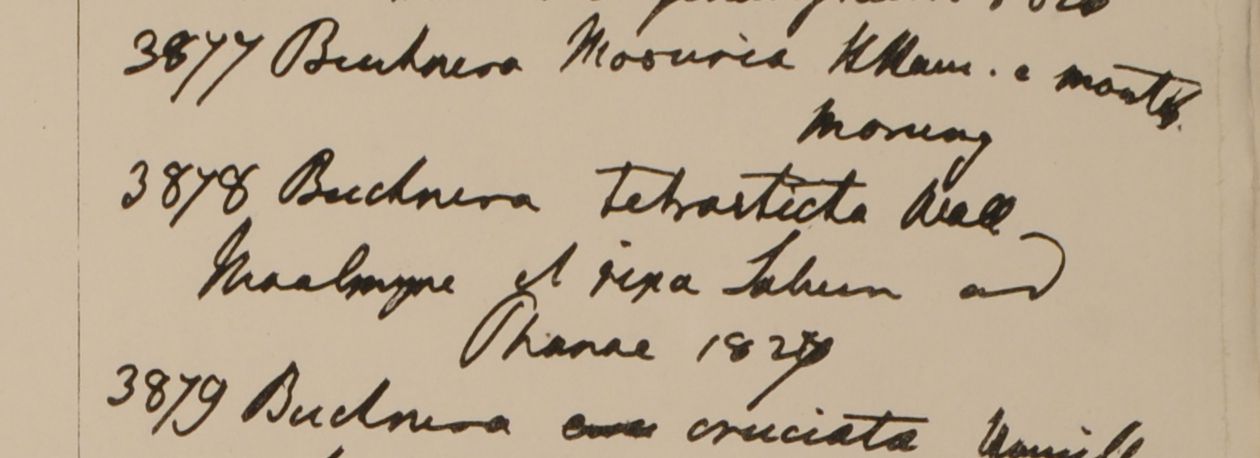 3877 Buchnera Mosuria HHam. e montib.
Morung
3878 Buchnera tetrasticta Wall
Moalmyne et ripa Saluen ad
Phanae 1827
3879 Buchnera cruciata Hamill